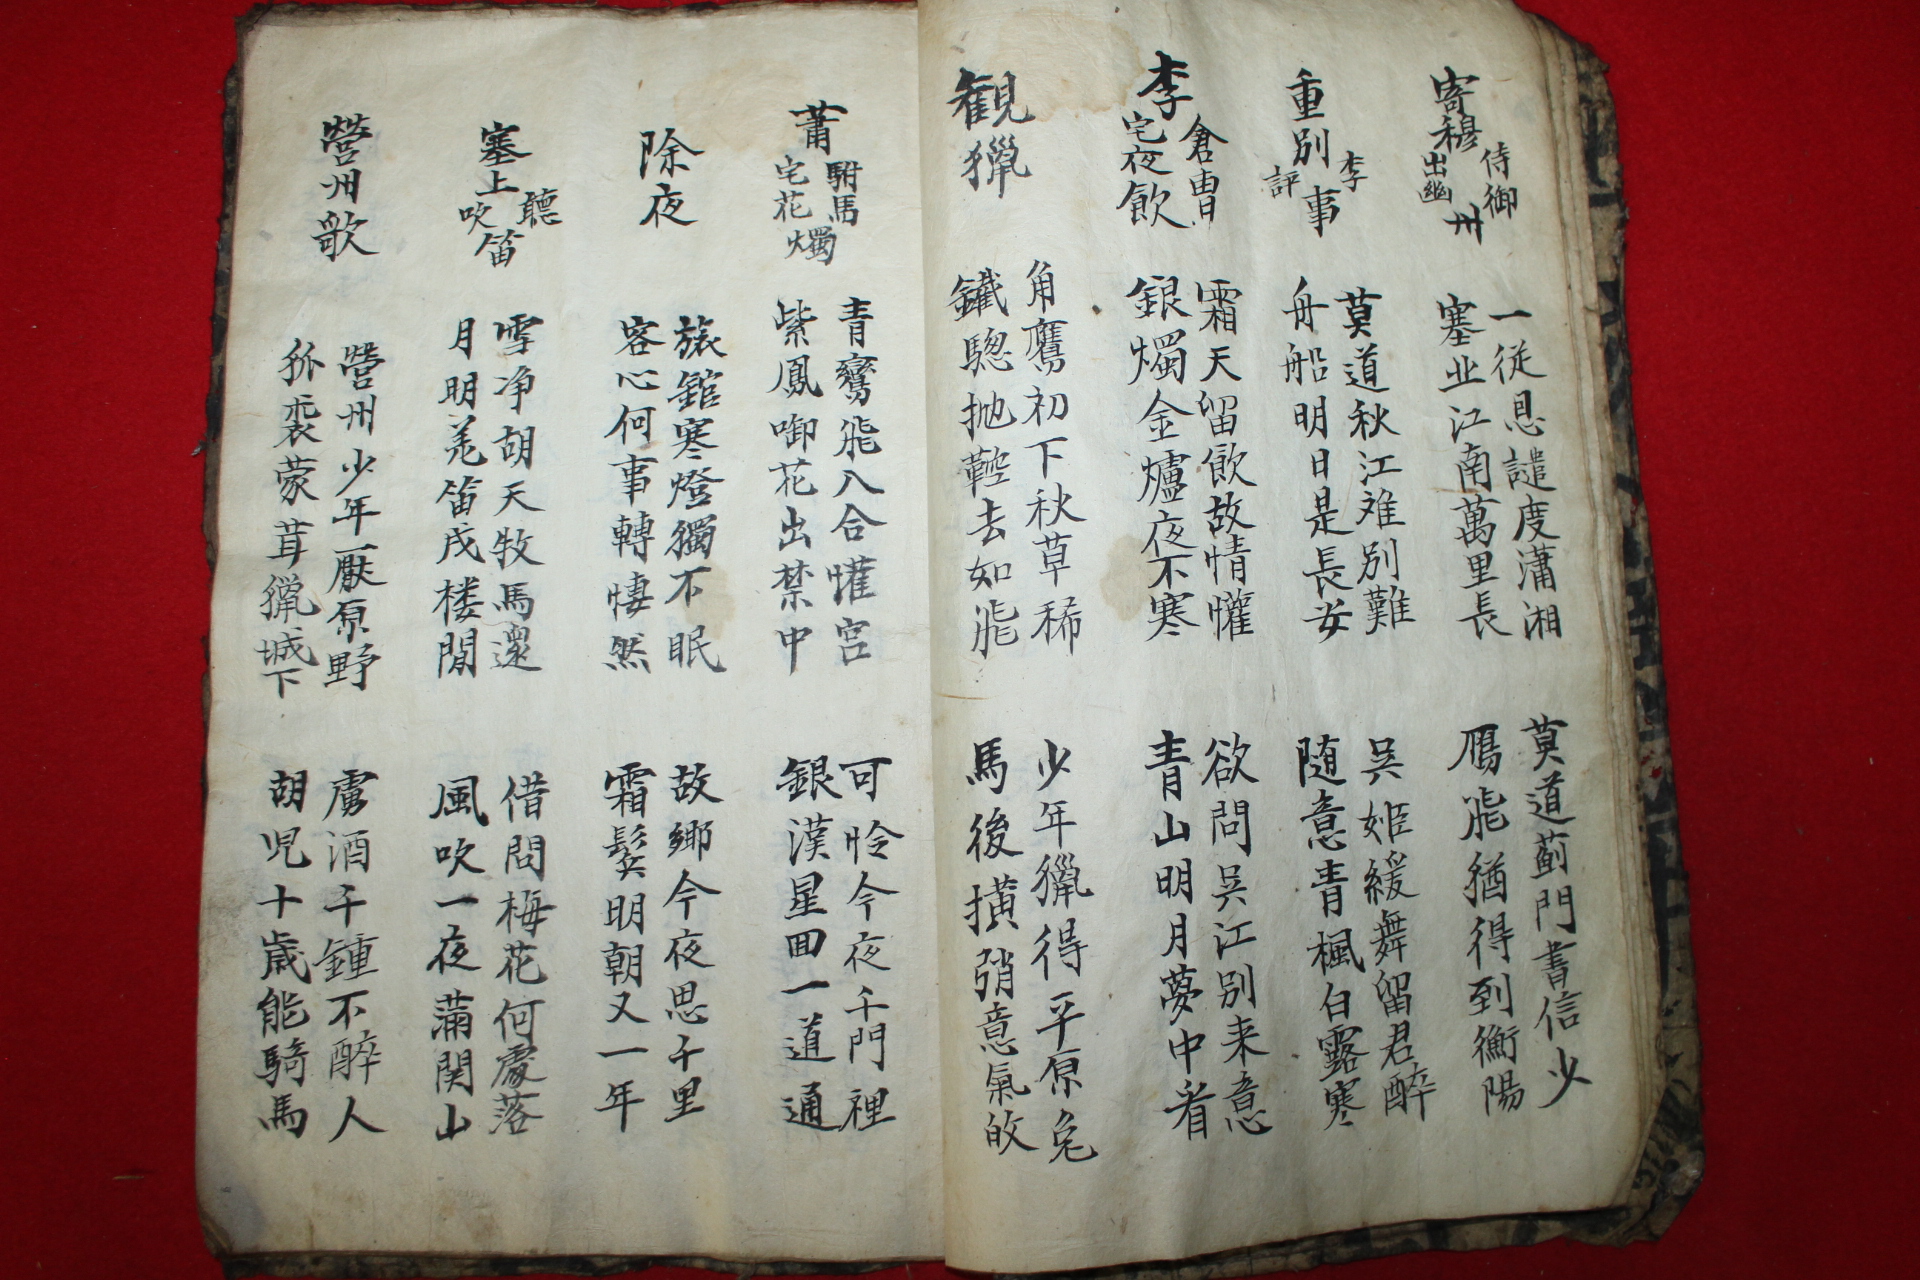 寄穆侍御出幽州
一從恩譴度瀟湘
塞北江南萬里長
莫道薊門書信少
鴈飛猶得到衡陽
重別李評事
莫道秋江难別難
舟船明日是長安
吳姬緩舞留君醉
随意青楓白露寒
李倉曹宅夜飲
霜天留飲故情懽
銀燭金爐夜不寒
欲問吳江別来意
青山明月夢中看
観獵
角鷹初下秋草稀
鐵驄抛鞚去如飛
少年獵得平原兔
馬後横弰意氣皈
蕭駙馬宅花燭
青鸞飛入合懽宮
紫鳳啣花出禁中
可怜今夜千門裡
銀漢星回一道通
除夜
旅館寒燈獨不眠
客心何事轉悽然
故鄉今夜思千里
霜鬂明朝又一年
塞上聽吹笛
雪净胡天牧馬還
月明羌笛戍楼間
借問梅花何處落
風吹一夜滿関山
營州歌
營州少年厭原野
狐裘蒙茸獵城下
虜酒千鍾不醉人
胡児十歲能騎馬